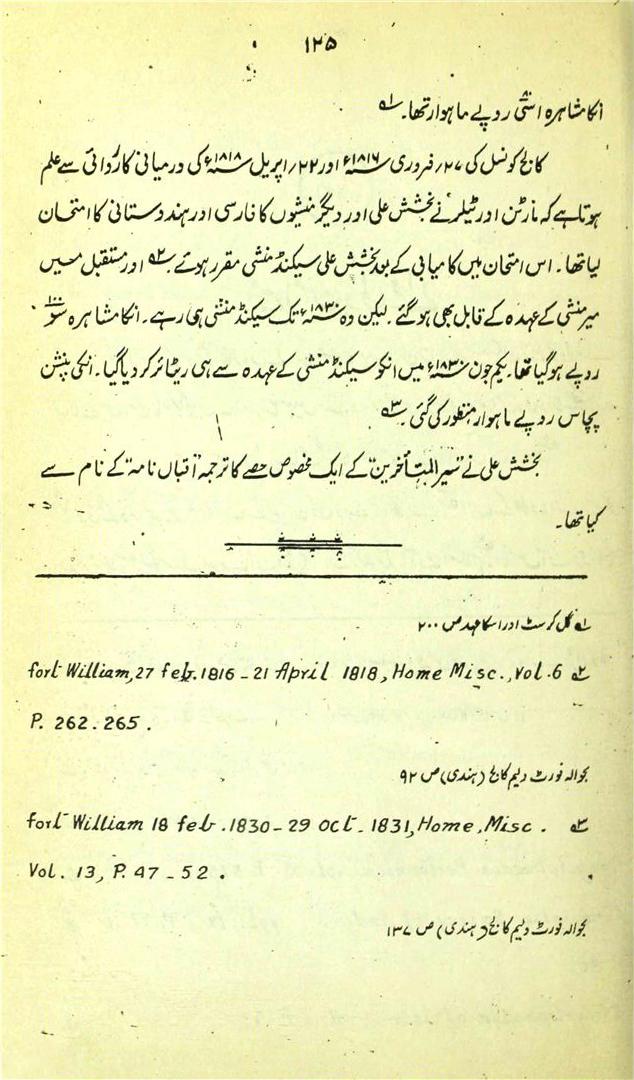 ۱۲۵
انکا مشاہرہ اسّی ۸۰ روپے ماہوار تھا۔ ۱ے
کالج کونسل کی ۲۷؍ فروری ۱۸۱۶ء اور ۲۲؍ اپریل ۱۸۱۸ء کی درمیانی کاروائی سے علم
ہوتا ہے کہ مارٹن اور ٹیلر نے بخشش علی اور دیگر منشیوں کا فارسی اور ہندوستانی کا امتحان
لیا تھا۔ اس امتحان میں کامیابی کے بعد بخشش علی سیکنڈ منشی مقرر ہوئے ۲ے اور مستقبل میں
میر منشی کے عہدہ کے قابل بھی ہوگئے۔ لیکن وہ ۱۸۳۰ء تک سیکنڈ منشی ہی رہے۔ انکا مشاہرہ سو ۱۰۰
روپے ہوگیا تھا۔ یکم جون ۱۸۳۰ء میں انکو سیکنڈ منشی کے عہدہ سے ہی ریٹائر کردیا گیا۔ انکی پنشن
پچاس روپے ماہوار منظور کی گئی۔ ۳ے
بخشش علی نے "سیر المتأخرین" کے ایک مخصوص حصے کا ترجمہ "اقبال نامہ" کے نام سے
کیا تھا۔
۱ے گل کرسٹ اور اسکا عہد ص ۲۰۰
fort William, 27 feb. 1816 - 21 April 1818, Home Misc., Vol. 6 ۲ے
P. 262. 265.
بحوالہ فورٹ ولیم کالج (ہندی) ص ۹۲
fort William 18 feb. 1830 - 29 Oct. 1831, Home, Misc. ۳ے
Vol. 13, P. 47 - 52.
بحوالہ فورٹ ولیم کالج (ہندی) ص ۱۳۷